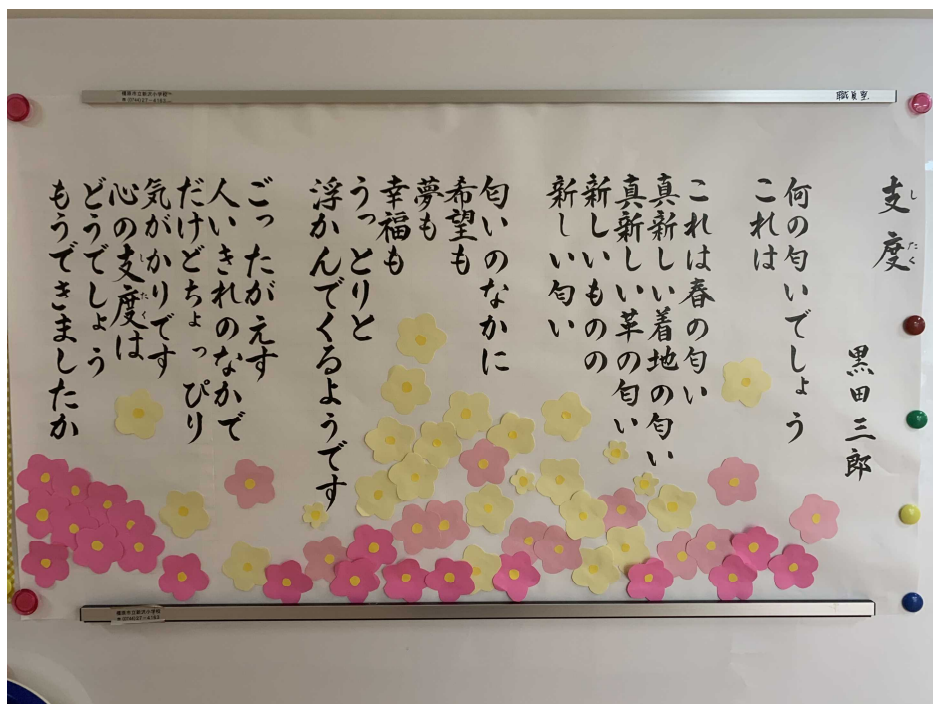 支度
したく
黒田三郎
何の匂いでしょう
これは
これは春の匂い
真新しい着地の匂い
真新しい革の匂い
新しいものの
新しい匂い
匂いのなかに
希望も
夢も
幸福も
うっとりと
浮かんでくるようです
ごったがえす
人いきれのなかで
だけどちょっぴり
気がかりです
心の支度は
したく
どうでしょう
もうできましたか
職員室